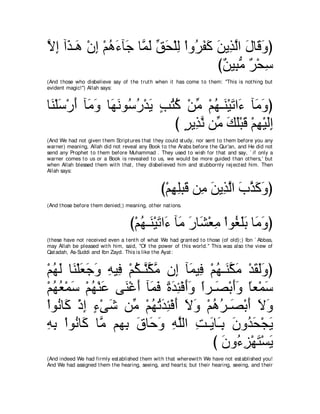 (وَقَالَ الَّذِينَ كَفَرُواْ لِلْحَقِّ لَمَّا جَآءَهُمْ إِنْ هَـذَآ إِلاَّ
سِحْرٌ مُّبِينٌ)
(And those who disbelieve say of the truth when it has come to them: "This is nothing but
evident magic!") Allah says:
(وَمَآ ءَاتَيْنَـهُمْ مِّنْ كُتُبٍ يَدْرُسُونَهَا وَمَآ أَرْسَلْنَا
إِلَيْهِمْ قَبْلَكَ مِّن نَّذِيرٍ )
(And We had not given them Scriptures that they could study, nor sent to them before you any
warner) meaning, Allah did not reveal any Book to the Arabs before the Qur'an, and He did not
send any Prophet to them before Muhammad . They used to wish for that and say, `if only a
warner comes to us or a Book is revealed to us, we would be more guided than others,' but
when Allah blessed them with that, they disbelieved him and stubbornly rejected him. Then
Allah says:
(وَكَذَّبَ الَّذِينَ مِن قَبْلِهِمْ)
(And those before them denied;) meaning, other nations.
(وَمَا بَلَغُواْ مِعْشَارَ مَآ ءَاتَيْنَـهُمْ)
(these have not received even a tenth of what We had granted to those (of old);) Ibn `Abbas,
may Allah be pleased with him, said, "Of the power of this world." This was also the view of
Qatadah, As-Suddi and Ibn Zayd. This is like the Ayat:
(وَلَقَدْ مَكَّنَـهُمْ فِيمَآ إِن مَّكَّنَّـكُمْ فِيهِ وَجَعَلْنَا لَهُمْ
سَمْعاً وَأَبْصَـراً وَأَفْئِدَةً فَمَآ أَغْنَى عَنْهُمْ سَمْعُهُمْ
وَلاَ أَبْصَـرُهُمْ وَلاَ أَفْئِدَتُهُمْ مِّن شَىْءٍ إِذْ كَانُواْ
يَجْحَدُونَ بِآيَـتِ اللَّهِ وَحَاقَ بِهم مَّا كَانُواْ بِهِ
يَسْتَهْزِءُونَ )
(And indeed We had firmly established them with that wherewith We have not established you!
And We had assigned them the hearing, seeing, and hearts; but their hearing, seeing, and their